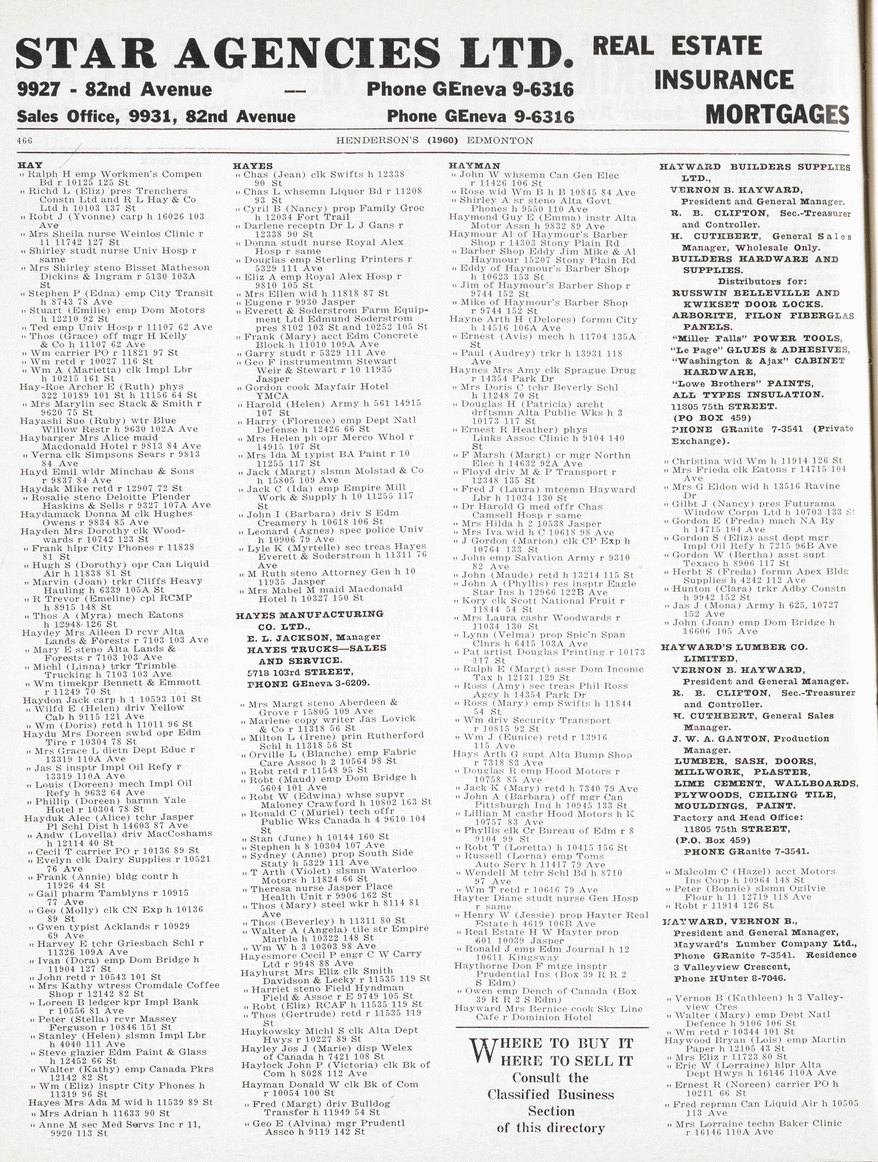 STAR AGENCIES LTD.
REAL ESTATE
INSURANCE
MORTGAGES
9927 - 82nd Avenue — Phone GEneva 9-6316
Sales Office, 9931, 82nd Avenue Phone GEneva 9-6316
466 HENDERSON'S (1960) EDMONTON
HAY
" Ralph H emp Workmen's Compen
Bd r 10125 125 St
" Richd L (Eliz) pres Trenchers
Constn Ltd and R L Hay & Co
Ltd h 10103 137 St
" Robt J (Yvonne) carp h 16026 103
Ave
" Mrs Sheila nurse Weinlos Clinic r
11 11742 127 St
" Shirley studt nurse Univ Hosp r
same
" Mrs Shirley steno Bisset Matheson
Dickins & Ingram r 5130 103A
St
" Stephen P (Edna) emp City Transit
h 8743 78 Ave
" Stuart (Emilie) emp Dom Motors
h 12210 92 St
" Ted emp Univ Hosp r 11107 62 Ave
" Thos (Grace) off mgr H Kelly
& Co h 11107 62 Ave
" Wm carrier PO r 11821 97 St
" Wm retd r 10027 116 St
" Wm A (Marietta) clk Impl Lbr
h 10215 161 St
Hay-Roe Archer E (Ruth) phys
322 10189 101 St h 11156 64 St
" Mrs Marylin sec Stack & Smith r
9620 75 St
Hayashi Sue (Ruby) wtr Blue
Willow Restr h 9630 102A Ave
Haybarger Mrs Alice maid
Macdonald Hotel r 9813 84 Ave
" Verna clk Simpsons Sears r 9813
84 Ave
Hayd Emil wldr Minchau & Sons
r 9837 84 Ave
Haydak Mike retd r 12907 72 St
" Rosalie steno Deloitte Plender
Haskins & Sells r 9327 107A Ave
Haydamack Donna M clk Hughes
Owens r 9834 85 Ave
Hayden Mrs Dorothy clk Wood-
wards r 10742 123 St
" Frank hlpr City Phones r 11838
81 St
" Hugh S (Dorothy) opr Can Liquid
Air h 11838 81 St
" Marvin (Joan) trkr Cliffs Heavy
Hauling h 6339 105A St
" R Trevor (Emeline) cpl RCMP
h 8915 148 St
" Thos A (Myra) mech Eatons
h 12948 126 St
Haydey Mrs Aileen D rcvr Alta
Lands & Forests r 7103 103 Ave
" Mary E steno Alta Lands &
Forests r 7103 103 Ave
" Michl (Linna) trkr Trimble
Trucking h 7103 103 Ave
" Wm timekpr Bennett & Emmott
r 11249 70 St
Haydon Jack carp h 1 10593 101 St
" Wilfd E (Helen) driv Yellow
Cab h 9115 121 Ave
" Wm (Doris) retd h 11011 96 St
Haydu Mrs Doreen swbd opr Edm
Tire r 10304 78 St
" Mrs Grace L dietn Dept Educ r
13319 110A Ave
" Jas S insptr Impl Oil Refy r
13319 110A Ave
" Louis (Doreen) mech Impl Oil
Refy h 9632 64 Ave
" Phillip (Doreen) barmn Yale
Hotel r 10304 78 St
Hayduk Alec (Alice) tchr Jasper
Pl Schl Dist h 14603 87 Ave
" Andw (Lovella) driv MacCoshams
h 12114 40 St
" Cecil T carrier PO r 10136 89 St
" Evelyn clk Dairy Supplies r 10521
76 Ave
" Frank (Annie) bldg contr h
11926 44 St
" Gail pharm Tamblyns r 10915
77 Ave
" Geo (Molly) clk CN Exp h 10136
89 St
" Gwen typist Acklands r 10929
69 Ave
" Harvey E tchr Griesbach Schl r
11326 109A Ave
" Ivan (Dora) emp Dom Bridge h
11904 127 St
" John retd r 10543 101 St
" Mrs Kathy wtress Cromdale Coffee
Shop r 12142 82 St
" Loreen B ledger kpr Impl Bank
r 10556 81 Ave
" Peter (Stella) rcvr Massey
Ferguson r 10846 151 St
" Stanley (Helen) slsmn Impl Lbr
h 4040 111 Ave
" Steve glazier Edm Paint & Glass
h 12452 66 St
" Walter (Kathy) emp Canada Pkrs
12142 82 St
" Wm (Eliz) insptr City Phones h
11319 96 St
Hayes Ada M wid h 11539 89 St
" Mrs Adrian h 11633 90 St
" Anne M sec Med Servs Inc r 11,
9920 113 St
HAYES
" Chas (Jean) clk Swifts h 12338
90 St
" Chas L whsemn Liquor Bd r 11208
93 St
" Cyril B (Nancy) prop Family Groc
h 12034 Fort Trail
" Darlene receptn Dr L J Gans r
12338 90 St
" Donna studt nurse Royal Alex
Hosp r same
" Douglas emp Sterling Printers r
5329 111 Ave
" Eliz A emp Royal Alex Hosp r
9810 105 St
" Mrs Ellen wid h 11818 87 St
" Eugene r 9930 Jasper
" Everett & Soderstrom Farm Equip-
ment Ltd Edmund Soderstrom
pres 8102 103 St and 10252 105 St
" Frank (Mary) acct Edm Concrete
Block h 11010 109A Ave
" Garry studt r 5329 111 Ave
" Geo P instrumentmn Stewart
Weir & Stewart r 10 11935
Jasper
" Gordon cook Mayfair Hotel
YMCA
" Harold (Helen) Army h 561 14915
107 St
" Harry (Florence) emp Dept Natl
Defense h 12426 66 St
" Mrs Helen ph opr Merco Whol r
14915 107 St
" Mrs Ida M typist BA Paint r 10
11255 117 St
" Jack (Margt) slsmn Molstad & Co
h 15805 109 Ave
" Jack C (Ida) emp Empire Mill
Work & Supply h 10 11255 117
St
" John I (Barbara) driv S Edm
Creamery h 10618 106 St
" Leonard (Agnes) spec police Univ
h 10906 79 Ave
" Lyle K (Myrtelle) sec treas Hayes
Everett & Soderstrom h 11311 76
Ave
" M Ruth steno Attorney Gen h 10
11935 Jasper
" Mrs Mabel M maid Macdonald
Hotel h 10327 150 St
HAYES MANUFACTURING
CO. LTD.,
E. L. JACKSON, Manager
HAYES TRUCKS—SALES
AND SERVICE.
5718 103rd STREET,
PHONE GEneva 3-6209.
" Mrs Margt steno Aberdeen &
Grove r 15805 109 Ave
" Marlene copy writer Jas Lovick
& Co r 11318 56 St
" Milton L (Irene) prin Rutherford
Schl h 11318 56 St
" Orville L (Blanche) emp Fabric
Care Assoc h 2 10564 98 St
" Robt retd r 11548 95 St
" Robt (Maud) emp Dom Bridge h
5604 101 Ave
" Robt W (Edwina) whse supvr
Maloney Crawford h 10802 163 St
" Ronald C (Muriel) tech offr
Public Wks Canada h 4 9610 104
St
" Stan (June) h 10144 160 St
" Stephen h 8 10304 107 Ave
" Sydney (Anne) prop South Side
Staty h 5329 111 Ave
" T Arth (Violet) slsmn Waterloo
Motors h 11824 66 St
" Theresa nurse Jasper Place
Health Unit r 9906 162 St
" Thos (Mary) steel wkr h 8114 81
Ave
" Thos (Beverley) h 11311 80 St
" Walter A (Angela) tile str Empire
Marble h 10322 148 St
" Wm W h 3 10303 98 Ave
Hayesmore Cecil P engr C W Carry
Ltd r 9948 88 Ave
Hayhurst Mrs Eliz clk Smith
Davidson & Lecky r 11535 119 St
" Harriet steno Field Hyndman
Field & Assoc r E 9749 105 St
" Robt (Eliz) RCAF h 11535 119 St
" Thos (Gertrude) retd r 11535 119
St
Haykowsky Michl S clk Alta Dept
Hwys r 10227 89 St
Hayley Jos J (Marie) disp Welex
of Canada h 7421 108 St
Haylock John P (Victoria) clk Bk of
Com h 8028 112 Ave
Hayman Donald W clk Bk of Com
r 10054 100 St
" Fred (Margt) driv Bulldog
Transfer h 11949 54 St
" Geo E (Alvina) mgr Prudentl
Assce h 9119 142 St
HAYMAN
" John W whsemn Can Gen Elec
r 11426 106 St
" Rose wid Wm B h B 10845 84 Ave
" Shirley A sr steno Alta Govt
Phones h 9550 110 Ave
Haymond Guy E (Emma) instr Alta
Motor Assn h 9832 89 Ave
Haymour Al of Haymour's Barber
Shop r 14303 Stony Plain Rd
" Barber Shop Eddy Jim Mike & Al
Haymour 15207 Stony Plain Rd
" Eddy of Haymour's Barber Shop
h 10623 153 St
" Jim of Haymour's Barber Shop r
9744 152 St
" Mike of Haymour's Barber Shop
r 9744 152 St
Hayne Arth H (Delores) formn City
h 14516 106A Ave
" Ernest (Avis) mech h 11704 135A
St
" Paul (Audrey) trkr h 13931 118
Ave
Haynes Mrs Amy clk Sprague Drug
r 14354 Park Dr
" Mrs Doris C tchr Beverly Schl
h 11248 70 St
" Douglas H (Patricia) archt
drftsmn Alta Public Wks h 3
10173 117 St
" Ernest R Heather) phys
Links Assoc Clinic h 9104 140
St
" F Marsh (Margt) cr mgr Northn
Elec h 14632 92A Ave
" Floyd driv M & P Transport r
12348 135 St
" Fred J (Laura) mtcemn Hayward
Lbr h 11034 130 St
" Dr Harold G med offr Chas
Camsell Hosp r same
" Mrs Hilda h 2 10538 Jasper
" Mrs Iva wid h C 10618 98 Ave
" J Gordon (Marion) clk CP Exp h
10764 133 St
" John emp Salvation Army r 9310
82 Ave
" John (Maude) retd h 13214 115 St
" John A (Phyllis) res insptr Eagle
Star Ins h 12966 122B Ave
" Kory clk Scott National Fruit r
11844 54 St
" Mrs Laura cashr Woodwards r
11034 130 St
" Lynn (Velma) prop Spic'n Span
Clnrs h 6415 103A Ave
" Pat artist Douglas Printing r 10173
117 St
" Ralph E (Margt) assr Dom Income
Tax h 12131 129 St
" Ross (Amy) sec treas Phil Ross
Agcy h 14354 Park Dr
" Ross (Mary) emp Swifts h 11844
54 St
" Wm driv Security Transport
r 10815 92 St
" Wm J (Eunice) retd r 13916
115 Ave
Hays Arth G supt Alta Bump Shop
r 7318 83 Ave
" Douglas R emp Hood Motors r
10758 85 Ave
" Jack K (Mary) retd h 7340 79 Ave
" John A (Barbara) off mgr Can
Pittsburgh Ind h 10945 133 St
" Lillian M cashr Hood Motors h K
10757 83 Ave
" Phyllis clk Cr Bureau of Edm r 8
9104 99 St
" Robt T (Loretta) h 10415 156 St
" Russell (Lorna) emp Toms
Auto Serv h 11417 79 Ave
" Wendell M tchr Schl Bd h 8710
97 Ave
" Wm T retd r 10616 79 Ave
Hayter Diane studt nurse Gen Hosp
r same
" Henry W (Jessie) prop Hayter Real
Estate h 4619 106B Ave
" Real Estate H W Hayter prop
601 10039 Jasper
" Ronald J emp Edm Journal h 12
10611 Kingsway
Haythorne Don F mtce insptr
Prudential Ins (Box 39 R R 2
S Edm)
" Owen emp Dench of Canada (Box
39 R R 2 S Edm)
Hayward Mrs Bernice cook Sky Line
Cafe r Dominion Hotel
WHERE TO BUY IT
WHERE TO SELL IT
Consult the
Classified Business
Section
of this directory
HAYWARD BUILDERS SUPPLIES
LTD.,
VERNON B. HAYWARD,
President and General Manager.
R. B. CLIFTON, Sec.-Treasurer
and Controller.
H. CUTHBERT, General Sales
Manager, Wholesale Only.
BUILDERS HARDWARE AND
SUPPLIES.
Distributors for:
RUSSWIN BELLEVILLE AND
KWIKSET DOOR LOCKS.
ARBORITE, FILON FIBERGLAS
PANELS.
"Miller Falls" POWER TOOLS,
"Le Page" GLUES & ADHESIVES,
"Washington & Ajax" CABINET
HARDWARE,
"Lowe Brothers" PAINTS,
ALL TYPES INSULATION.
11805 75th STREET.
(PO BOX 459)
PHONE GRanite 7-3541 (Private
Exchange).
" Christina wid Wm h 11914 126 St
" Mrs Frieda clk Eatons r 14715 104
Ave
" Mrs G Eldon wid h 13516 Ravine
Dr
" Gilbt J (Nancy) pres Futurama
Window Corpn Ltd h 10703 133 St
" Gordon E (Freda) mach NA Ry
h 14715 104 Ave
" Gordon S (Eliz) asst dept mgr
Impl Oil Refy h 7215 96B Ave
" Gordon W (Bertha) asst supt
Texaco h 8906 117 St
" Herbt S (Freda) formn Apex Bldg
Supplies h 4242 112 Ave
" Hunton (Clara) trkr Adby Constn
h 9942 152 St
" Jas J (Mona) Army h 625, 10727
152 Ave
" John (Joan) emp Dom Bridge h
16606 105 Ave
HAYWARD'S LUMBER CO.
LIMITED,
VERNON B. HAYWARD,
President and General Manager.
R. B. CLIFTON, Sec.-Treasurer
and Controller.
H. CUTHBERT, General Sales
Manager.
J. W. A. GANTON, Production
Manager.
LUMBER, SASH, DOORS,
MILLWORK, PLASTER,
LIME CEMENT, WALLBOARDS,
PLYWOODS, CEILING TILE,
MOULDINGS, PAINT.
Factory and Head Office:
11805 75th STREET,
(P.O. Box 459)
PHONE GRanite 7-3541.
" Malcolm C (Hazel) acct Motors
Ins Corp h 10964 148 St
" Peter (Bonnie) slsmn Ogilvie
Flour h 11 12719 118 Ave
" Robt r 11914 126 St
HAYWARD, VERNON B.,
President and General Manager,
Hayward's Lumber Company Ltd.,
Phone GRanite 7-3541. Residence
3 Valleyview Crescent,
Phone HUnter 8-7046.
" Vernon B (Kathleen) h 3 Valley-
view Cres
" Walter (Mary) emp Dept Natl
Defence h 9106 106 St
" Wm retd r 10344 101 St
Haywood Bryan (Lois) emp Martin
Paper h 12105 43 St
" Mrs Eliz r 11723 80 St
" Eric W (Lorraine) hlpr Alta
Dept Hwys h 16146 110A Ave
" Ernest R (Noreen) carrier PO h
10211 66 St
" Fred reprmn Can Liquid Air h 10505
113 Ave
" Mrs Lorraine techn Baker Clinic
r 16146 110A Ave